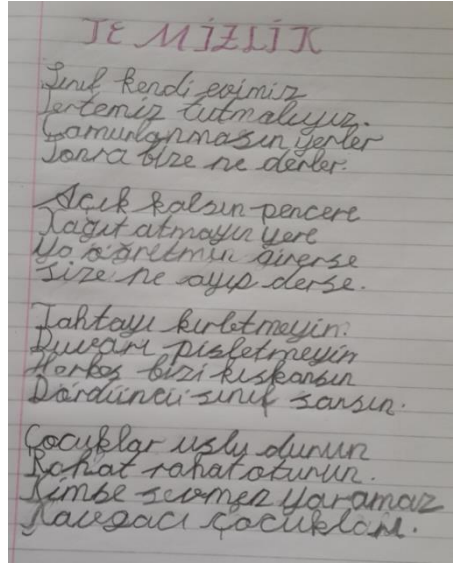 TEMİZLİK
Sınıf kendi evimiz
Tertemiz tutmalıyız.
Çamurlanmasın yerler
Sonra bize ne derler.
Açık kalsın pencere
Kağıt atmayın yere
Ya öğretmen girerse
Size ne ayıp derse.
Tahtayı kirletmeyin.
Duvarı pisletmeyin
Herkes bizi kıskansın
Dördüncü sınıf sansın.
Çocuklar uslu durun
Rahat rahat oturun.
Kimse sevmez yaramaz
Kavgacı çocukları.